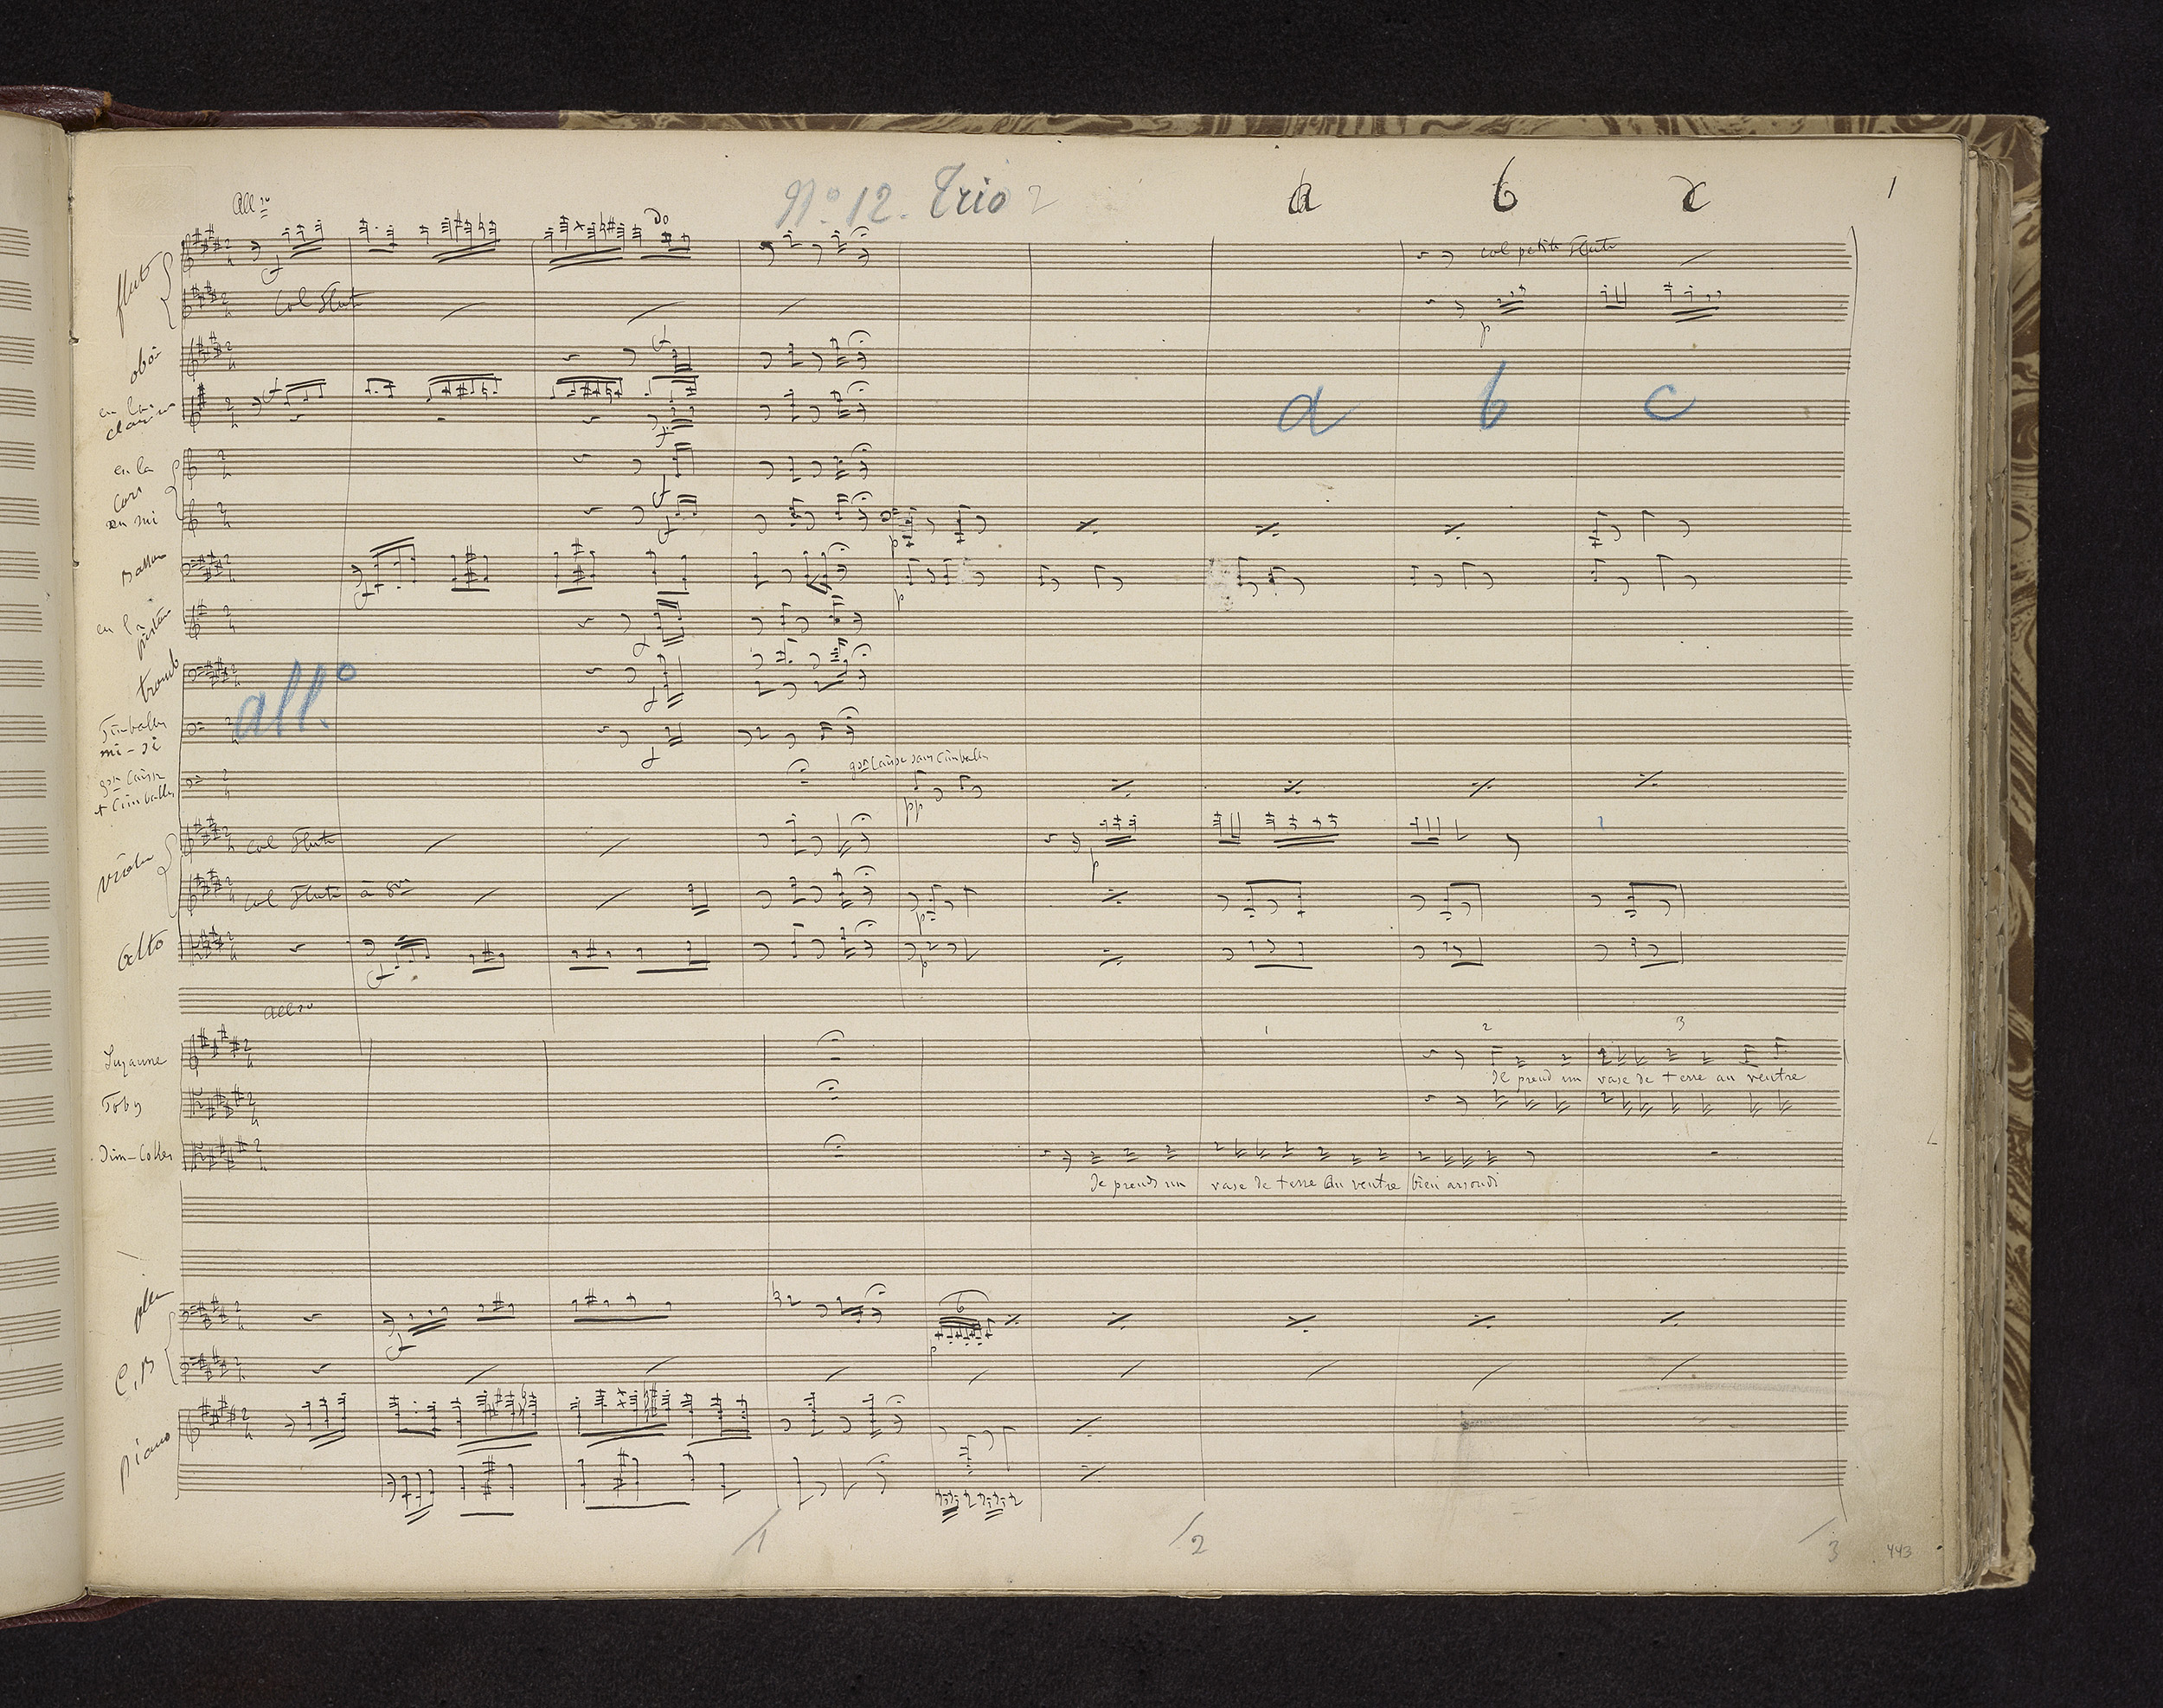 No. 12. Trio 2
a b c 1
Allo
flute
do
col petite Flute
Col Flute
p
oboi
en la
clarin
a b c
en la
Cors
en mi
p
Basson
p
en la
piston
tromb
all.o
Timballes
mi-si
grse Caisse
+ Cimballes
grse Caisse sans Cimballes
pp
violon
col Flute
p
col Flute à 8va
p
Alto
p
Allo
1 2 3
Suzanne
Je prend un vase de terre au ventre
Toby
Dim-Cokes
Je prends un vase de terre au ventre bien arrondi
6
p
C, B
piano
1 2 3
443